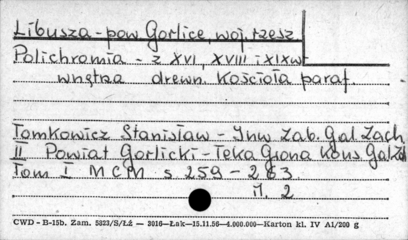 Libusza - pow Gorlice, woj. rzesz
Polichromia - z XVI, XVIII i XIXw
wnętrza drewn. Kościoła paraf.
Tomkowicz Stanisław - Inw Zab. Gal Zach
II Powiat Gorlicki - Teka Grona Kons. Gal Zd
Tom I MCM s 259 - 263.
il. 2
CWD - B-15b. Zam. 5323/S/Łź — 3016—Łok—15.11.56—4.000.000—Karton kl. IV A1/200 g